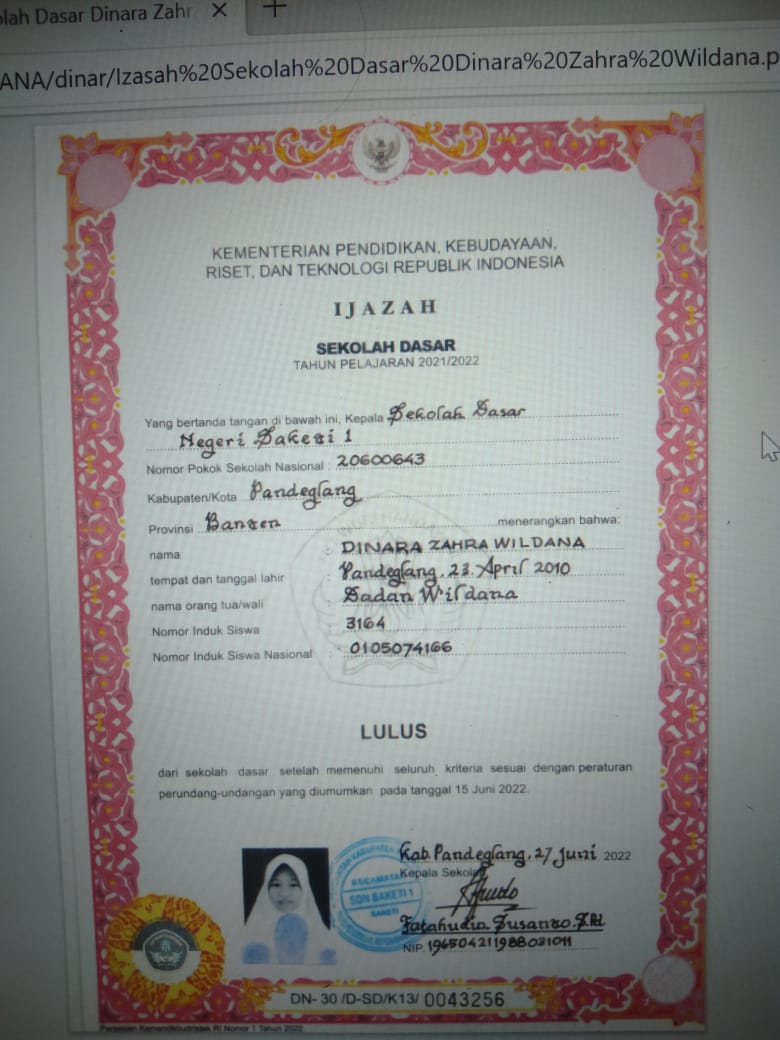 olah Dasar Dinara Zahr × +
ANA/dinar/Izasah%20Sekolah%20Dasar%20Dinara%20Zahra%20Wildana.p
KEMENTERIAN PENDIDIKAN, KEBUDAYAAN,
RISET, DAN TEKNOLOGI REPUBLIK INDONESIA
IJAZAH
SEKOLAH DASAR
TAHUN PELAJARAN 2021/2022
Yang bertanda tangan di bawah ini, Kepala Sekolah Dasar
Negeri Saketi 1
Nomor Pokok Sekolah Nasional : 20600643
Kabupaten/Kota Pandeglang
Provinsi Banten menerangkan bahwa:
nama : DINARA ZAHRA WILDANA
tempat dan tanggal lahir : Pandeglang, 23 April 2010
nama orang tua/wali : Dadan Wildana
Nomor Induk Siswa : 3164
Nomor Induk Siswa Nasional : 0105074166
LULUS
dari sekolah dasar setelah memenuhi seluruh kriteria sesuai dengan peraturan
perundang-undangan yang diumumkan pada tanggal 15 Juni 2022.
Kab. Pandeglang, 27 Juni 2022
Kepala Sekolah
KECAMATAN
SDN SAKETI 1
SAKETI
Fatahudin Susanto, S.Pd
NIP 196504211988031011
DN- 30 /D-SD/K13/ 0043256
Persesjen Kemendikbudristek RI Nomor 1 Tahun 2022